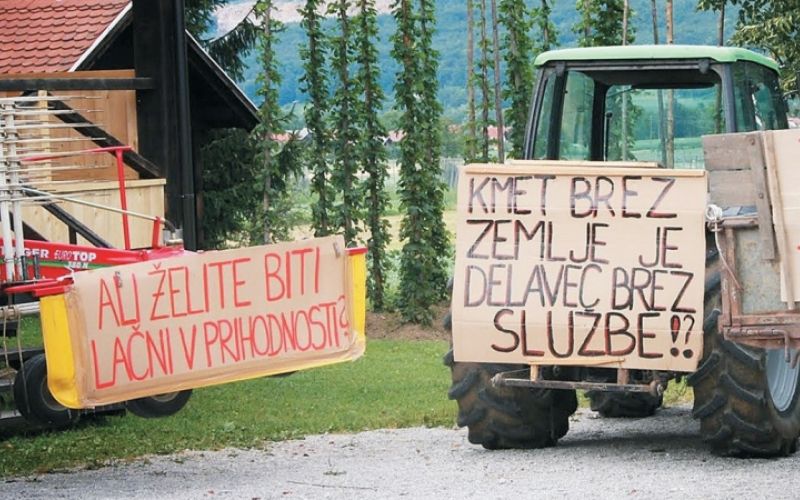 ALI ŽELITE BITI
LAČNI V PRIHODNOSTI?
KMET BREZ
ZEMLJE JE
DELAVEC BREZ
SLUŽBE!?
EUROTOP